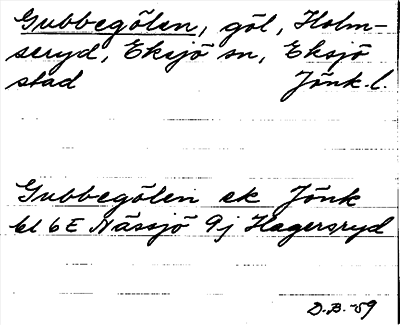 Gubbegölen, göl, Holm-
seryd, Eksjö sn, Eksjö
stad Jönk. l.
Gubbegölen ek Jönk
bl 6E Nässjö 9j Hagersryd
D.B. -59